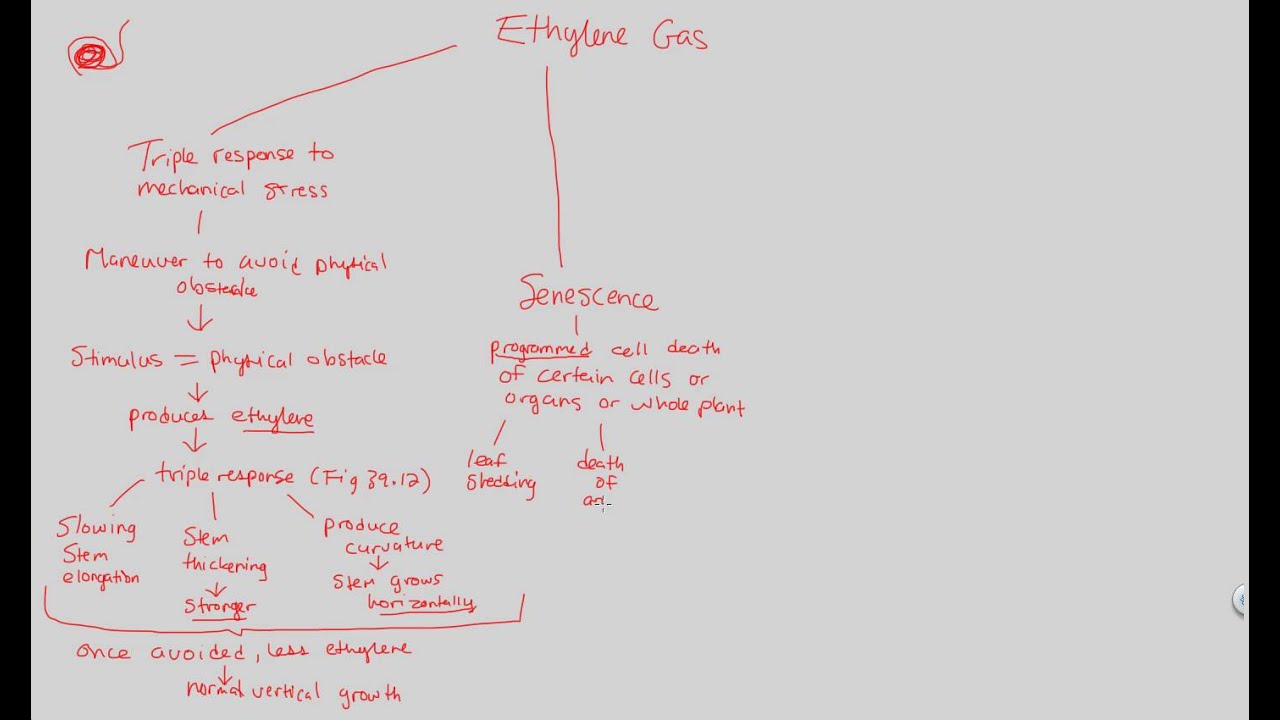 Ethylene Gas
Triple response to
mechanical stress
Maneuver to avoid physical
obstacle
Stimulus = physical obstacle
produces ethylene
triple response (Fig 39.12)
Slowing
Stem
elongation
Stem
thickening
↓
stronger
produce
curvature
↓
stem grows
horizontally
once avoided, less ethylene
↓
normal vertical growth
Senescence
programmed cell death
of certain cells or
organs or whole plant
leaf
shedding
death
of